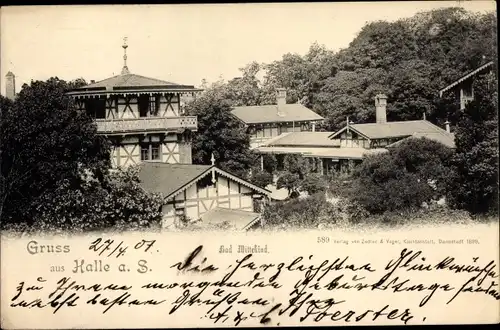 589 Verlag von Zedler & Vogel, Kunstanstalt, Darmstadt 1899.
Gruss aus Halle a. S.
27/4 01.
Bad Wittekind.
Die herzlichsten Glückwünsche
zu Ihrem morgenden Geburtstage sendet
nebst besten Grüßen Ihr
Foerster.